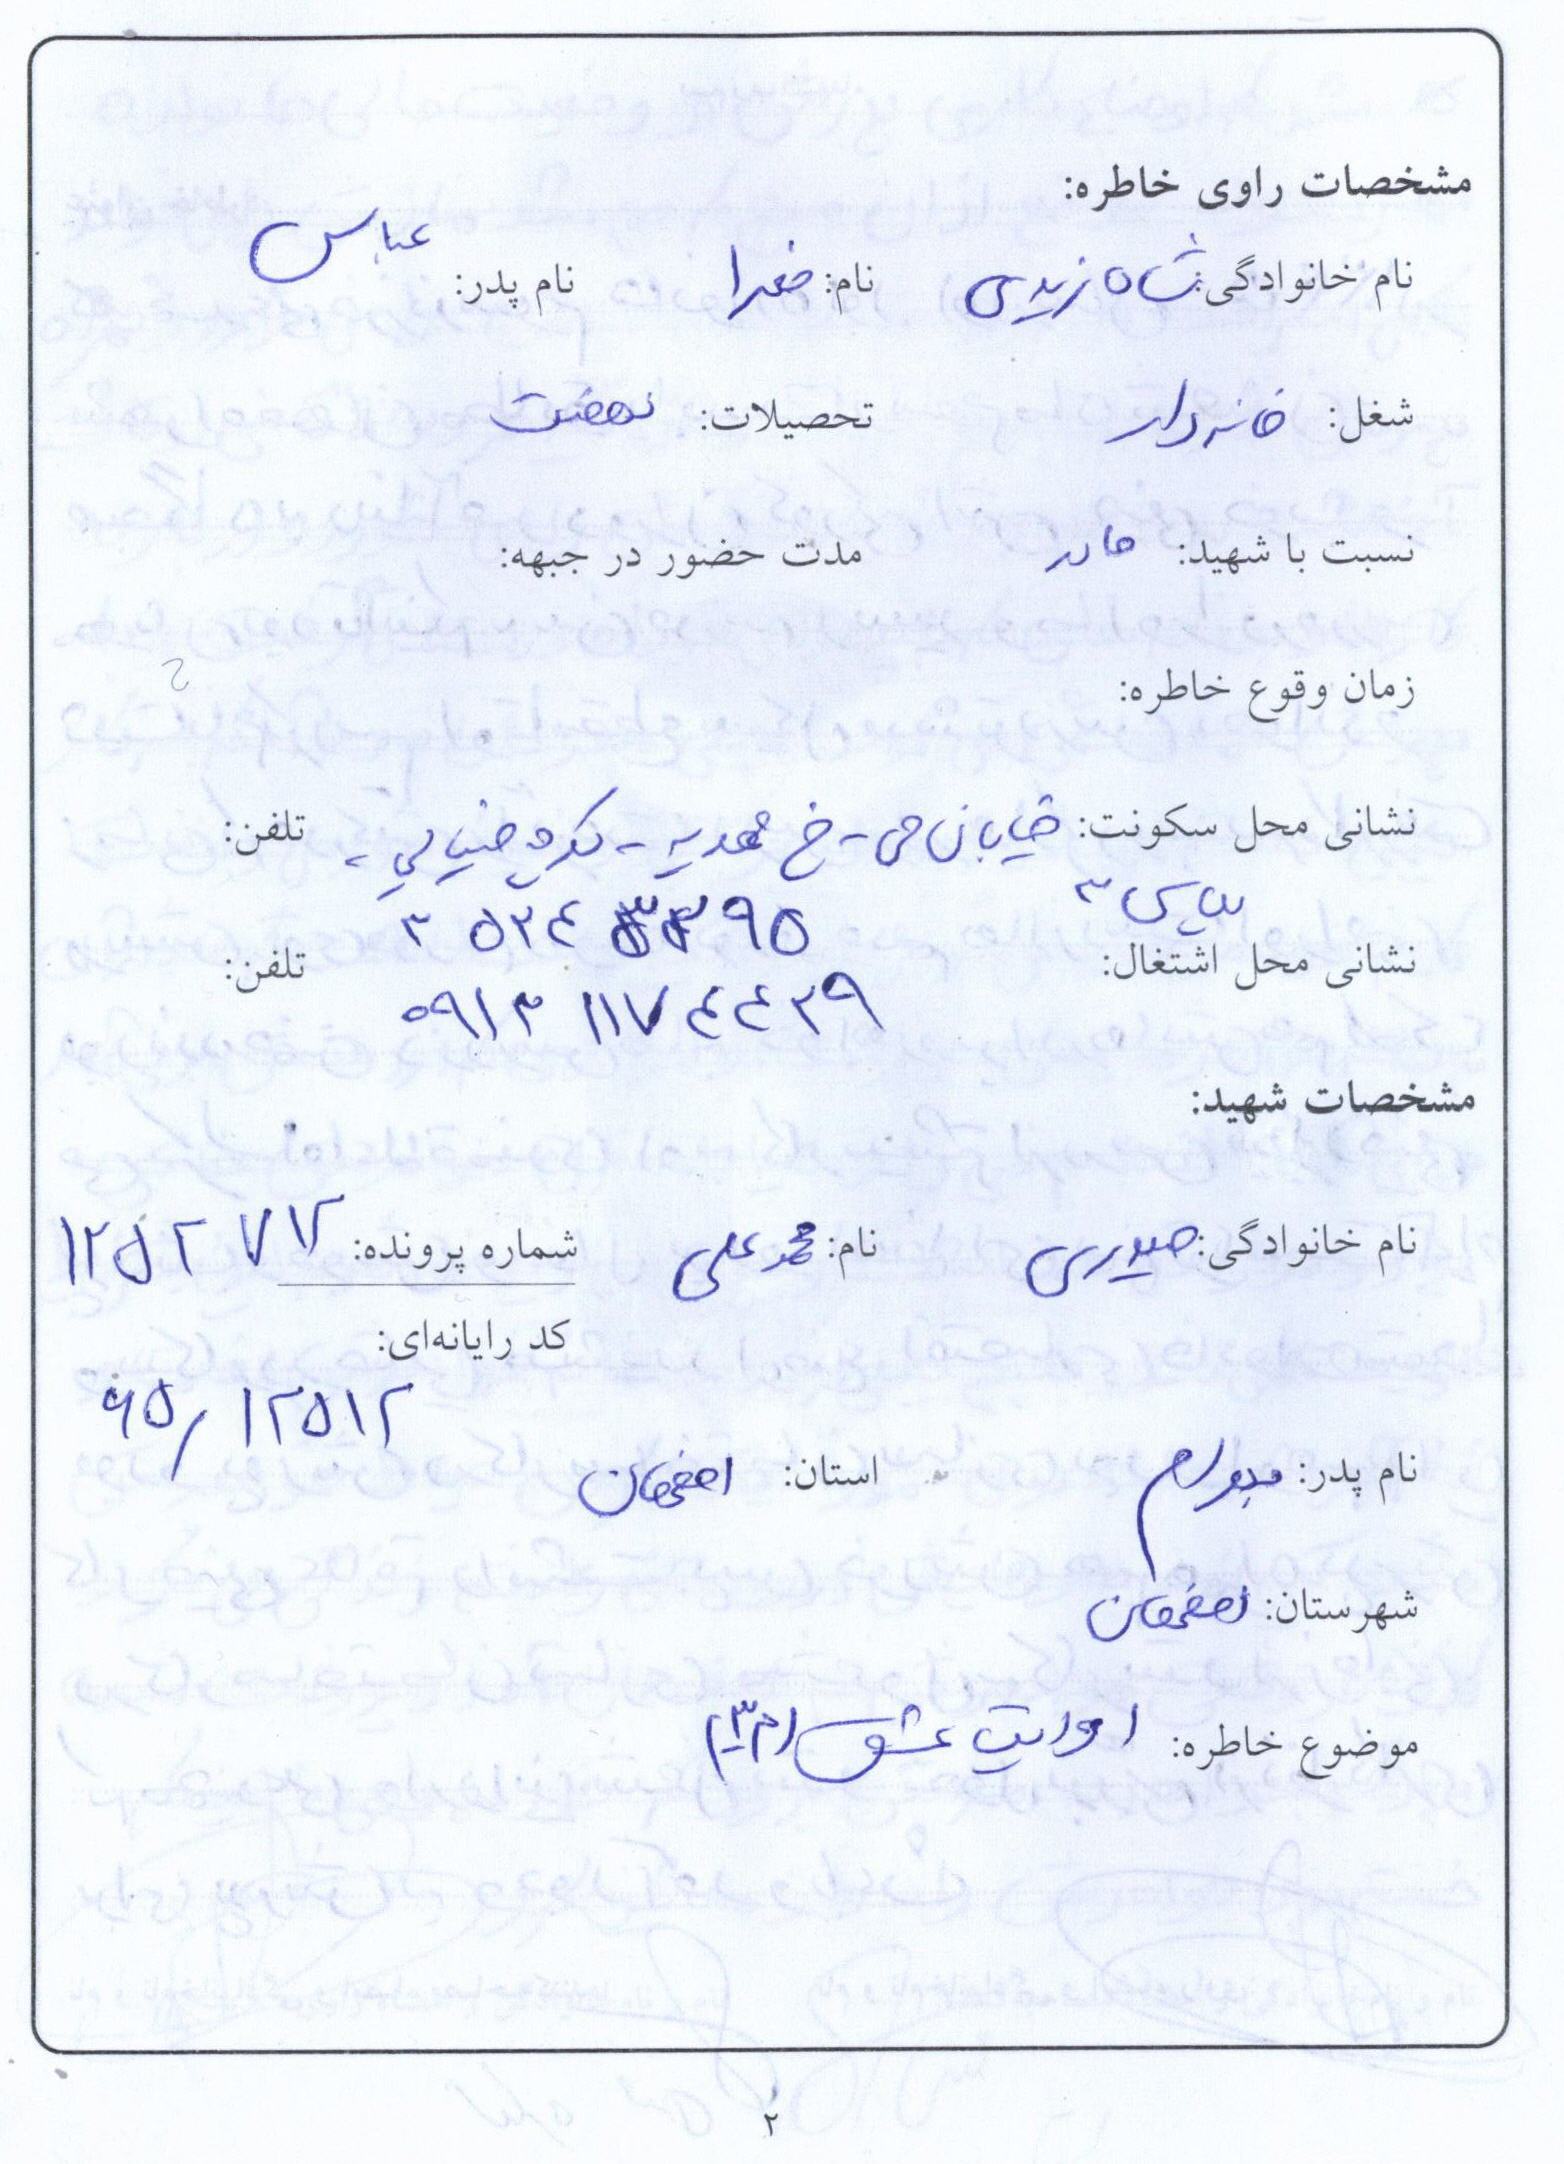 مشخصات راوی خاطره:
نام خانوادگی: شاه زیدی نام: صغرا نام پدر: عباس
شغل: خانه دار تحصیلات: نهضت
نسبت با شهید: مادر مدت حضور در جبهه:
زمان وقوع خاطره:
نشانی محل سکونت: خیابان - خ مهدیه - تلفن:
۳
۳ ۵۲۴ ۳۳۹۵
نشانی محل اشتغال: تلفن:
۰۹۱۳ ۱۱۷ ۴۴۲۹
مشخصات شهید:
نام خانوادگی: حیدری نام: محمد علی شماره پرونده: ۱۲۵۲۷۷
کد رایانه‌ای:
۶۵/۱۲۵۱۲
نام پدر: استان: اصفهان
شهرستان: اصفهان
موضوع خاطره: عشق
۲